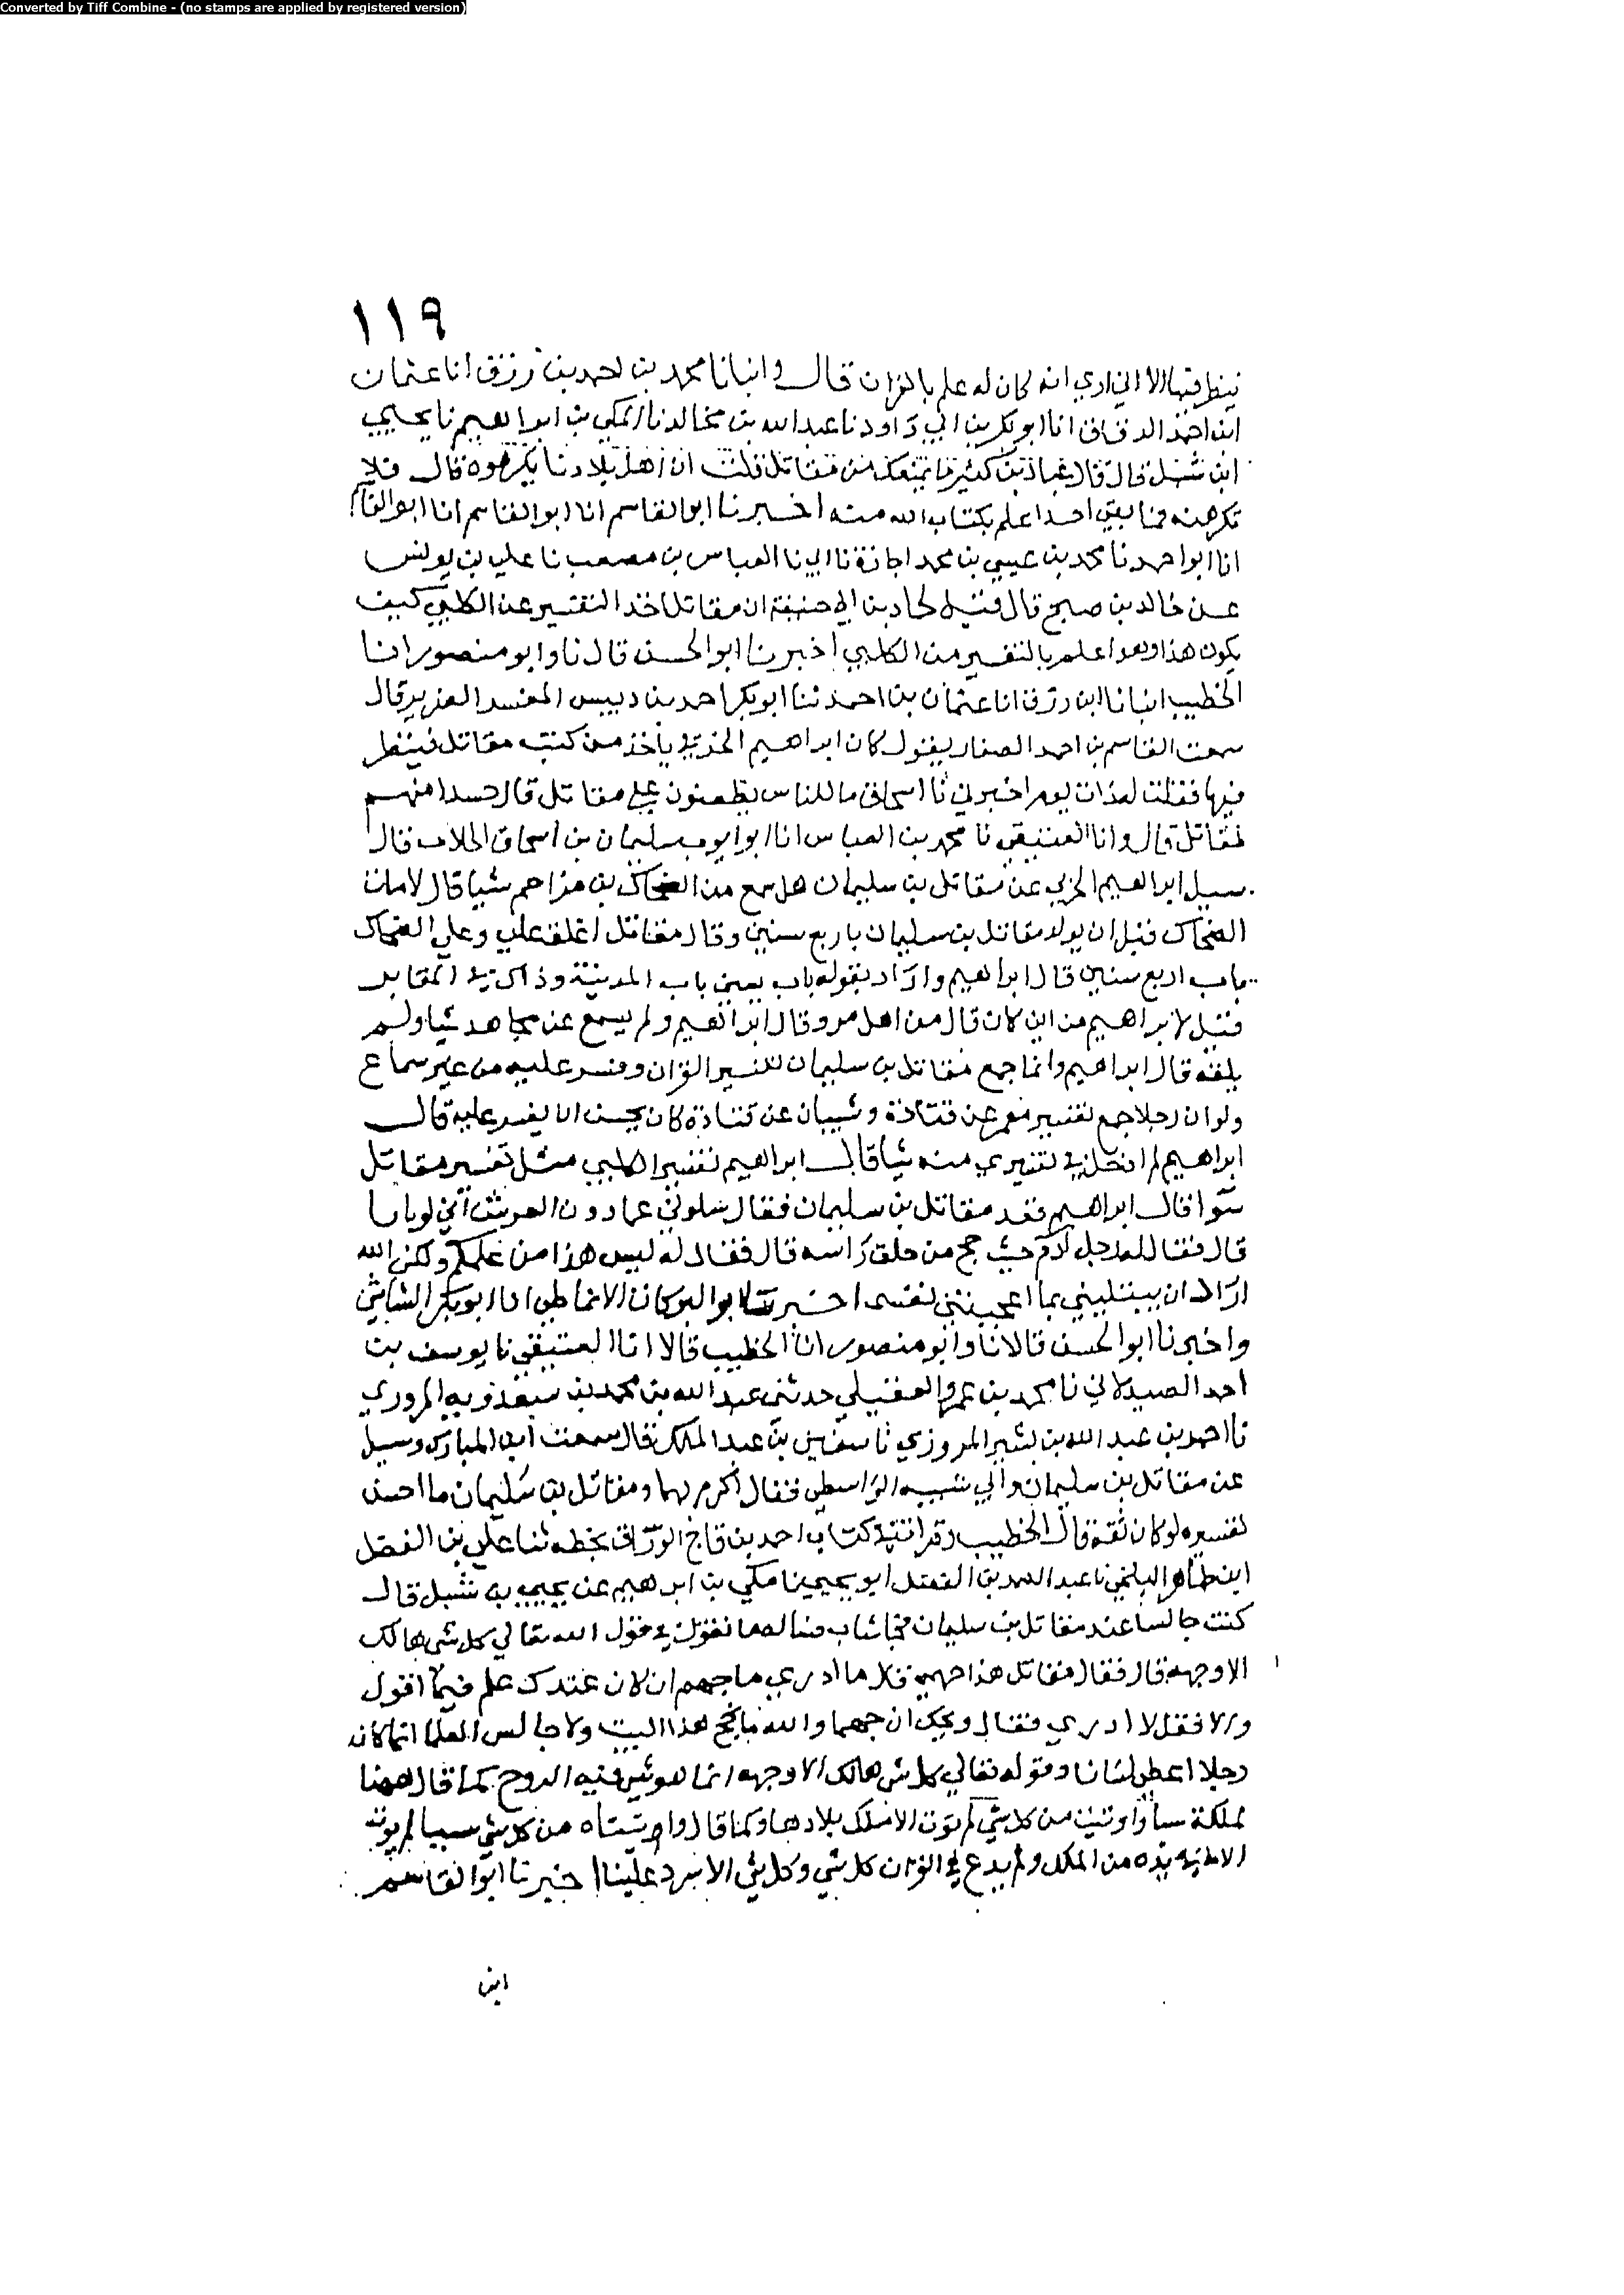 Converted by Tiff Combine - (no stamps are applied by registered version)
١١٩
ينظر فيها الا اني اري انه كان له علم بالقران قال وانبانا محمد بن احمد بن رزق انا عثمان
ابن احمد الدقاق انا ابو بكر بن ابي داود نا عبدالله بن مخالد نا المكي بن ابراهيم نا يحيي
ابن شبل قال قال لي عباد بن كثير ما يمنعك من مقاتل قلت ان اهل بلادنا يكرهوه قال فلا
تكرهنه فما بقي احدا علم بكتاب الله منه اخبرنا ابو القاسم انا ابو القاسم انا ابو القاسم
انا ابو احمد نا محمد بن عيسي بن محمد اجازة نا ابي نا العباس بن مصعب نا علي بن يونس
عن خالد بن صبيح قال قيل لحماد بن ابي حنيفة ان مقاتل اخذ التفسير عن الكلبي كيف
يكون هذا وهو اعلم بالتفسير من الكلبي اخبرنا ابو الحسن قال نا وابو منصور انا
الخطيب انبانا ابن رزق انا عثمان بن احمد ثنا ابو بكر احمد بن دبيس المفسر العزيز قال
سمعت القاسم بن احمد الصفار يقول كان ابراهيم الحربي ياخذ من كتب مقاتل فينظر
فيها فقلت له ذات يوم اخبرني يا اسحاق ما للناس يطعنون علي مقاتل قال حسدا منهم
لمقاتل قال وانا العتيقي نا محمد بن العباس انا ابو ايوب سليمان بن اسحاق الجلاب قال
سيل ابراهيم الحربي عن مقاتل بن سليمان هل سمع من الضحاك بن مزاحم شيا قال لا مات
الضحاك قبل ان يولد مقاتل بن سليمان باربع سنين وقال مقاتل اغلق علي وعلي الضحاك
باب اربع سنين قال ابراهيم واراد بقوله باب يعني باب المدينة وذاك في المقابر
قيل لابراهيم من اين كان قال من اهل مرو قال ابراهيم ولم يسمع عن مجاهد شيا ولم
يلقه قال ابراهيم وانما جمع مقاتل بن سليمان تفسير القران وفسر عليه من غير سماع
ولو ان رجلا جمع تفسير معمر عن قتادة وشيبان عن قتادة كان يحسن ان يفسر عليه قال
ابراهيم لم ادخل في تفسيري منه شيا قال ابراهيم تفسير الكلبي مثل تفسير مقاتل
سوا قال ابراهيم قعد مقاتل بن سليمان فقال سلوني عما دون العرش الي لوياا
قال فقال له رجل ادم حيث حج من حلق راسه قال فقال له ليس هذا من علمكم ولكن الله
اراد ان يبتليني بما اعجبتني نفسي اخبرنا ابو البركات الانماطي انا ابو بكر الشامي
واخبرنا ابو الحسن قالا نا وابو منصور انا الخطيب قالا انا العتيقي نا يوسف بن
احمد الصيدلاني نا محمد بن عمرو العقيلي حدثني عبد الله بن محمد بن سعدويه المروزي
نا احمد بن عبد الله بن بشير المروزي نا سفين بن عبد الملك قال سمعت ابن المبارك وسيل
عن مقاتل بن سليمان وابي شيبه الواسطي فقال ارم بهما ومقاتل بن سليمان ما احسن
تفسيره لو كان ثقة قال الخطيب وقرات في كتاب احمد بن قاج الوراق بخطه ثنا علي بن الفضل
ابن طاهر البلخي نا عبد الصمد بن الفضل ابو يحيي نا مكي بن ابرهيم عن يحيي بن شبل قال
كنت جالسا عند مقاتل بن سليمان فجا شاب فساله ما تقول في قول الله تعالي كل شي هالك
الا وجهه قال فقال مقاتل هذا جهمي قال ما ادري ما جهم ان كان عندك علم فيما اقول
والا فقل لا ادري فقال ويحك ان جهما والله ما حج هذا البيت ولا جالس العلما انما كان
رجلا اعطي لسانا وقوله تعالي كل شي هالك الا وجهه انما هو شي فيه الروح كما قال ههنا
لملكة سبأ واوتيت من كل شي لم توت الا ملك بلادها وكما قال واتيناه من كل شي سببا لم يوت
الا ما في يده من الملك ولم يدع في القران كل شي وكل شي الا سرد علينا اخبرنا ابو القاسم
ابن